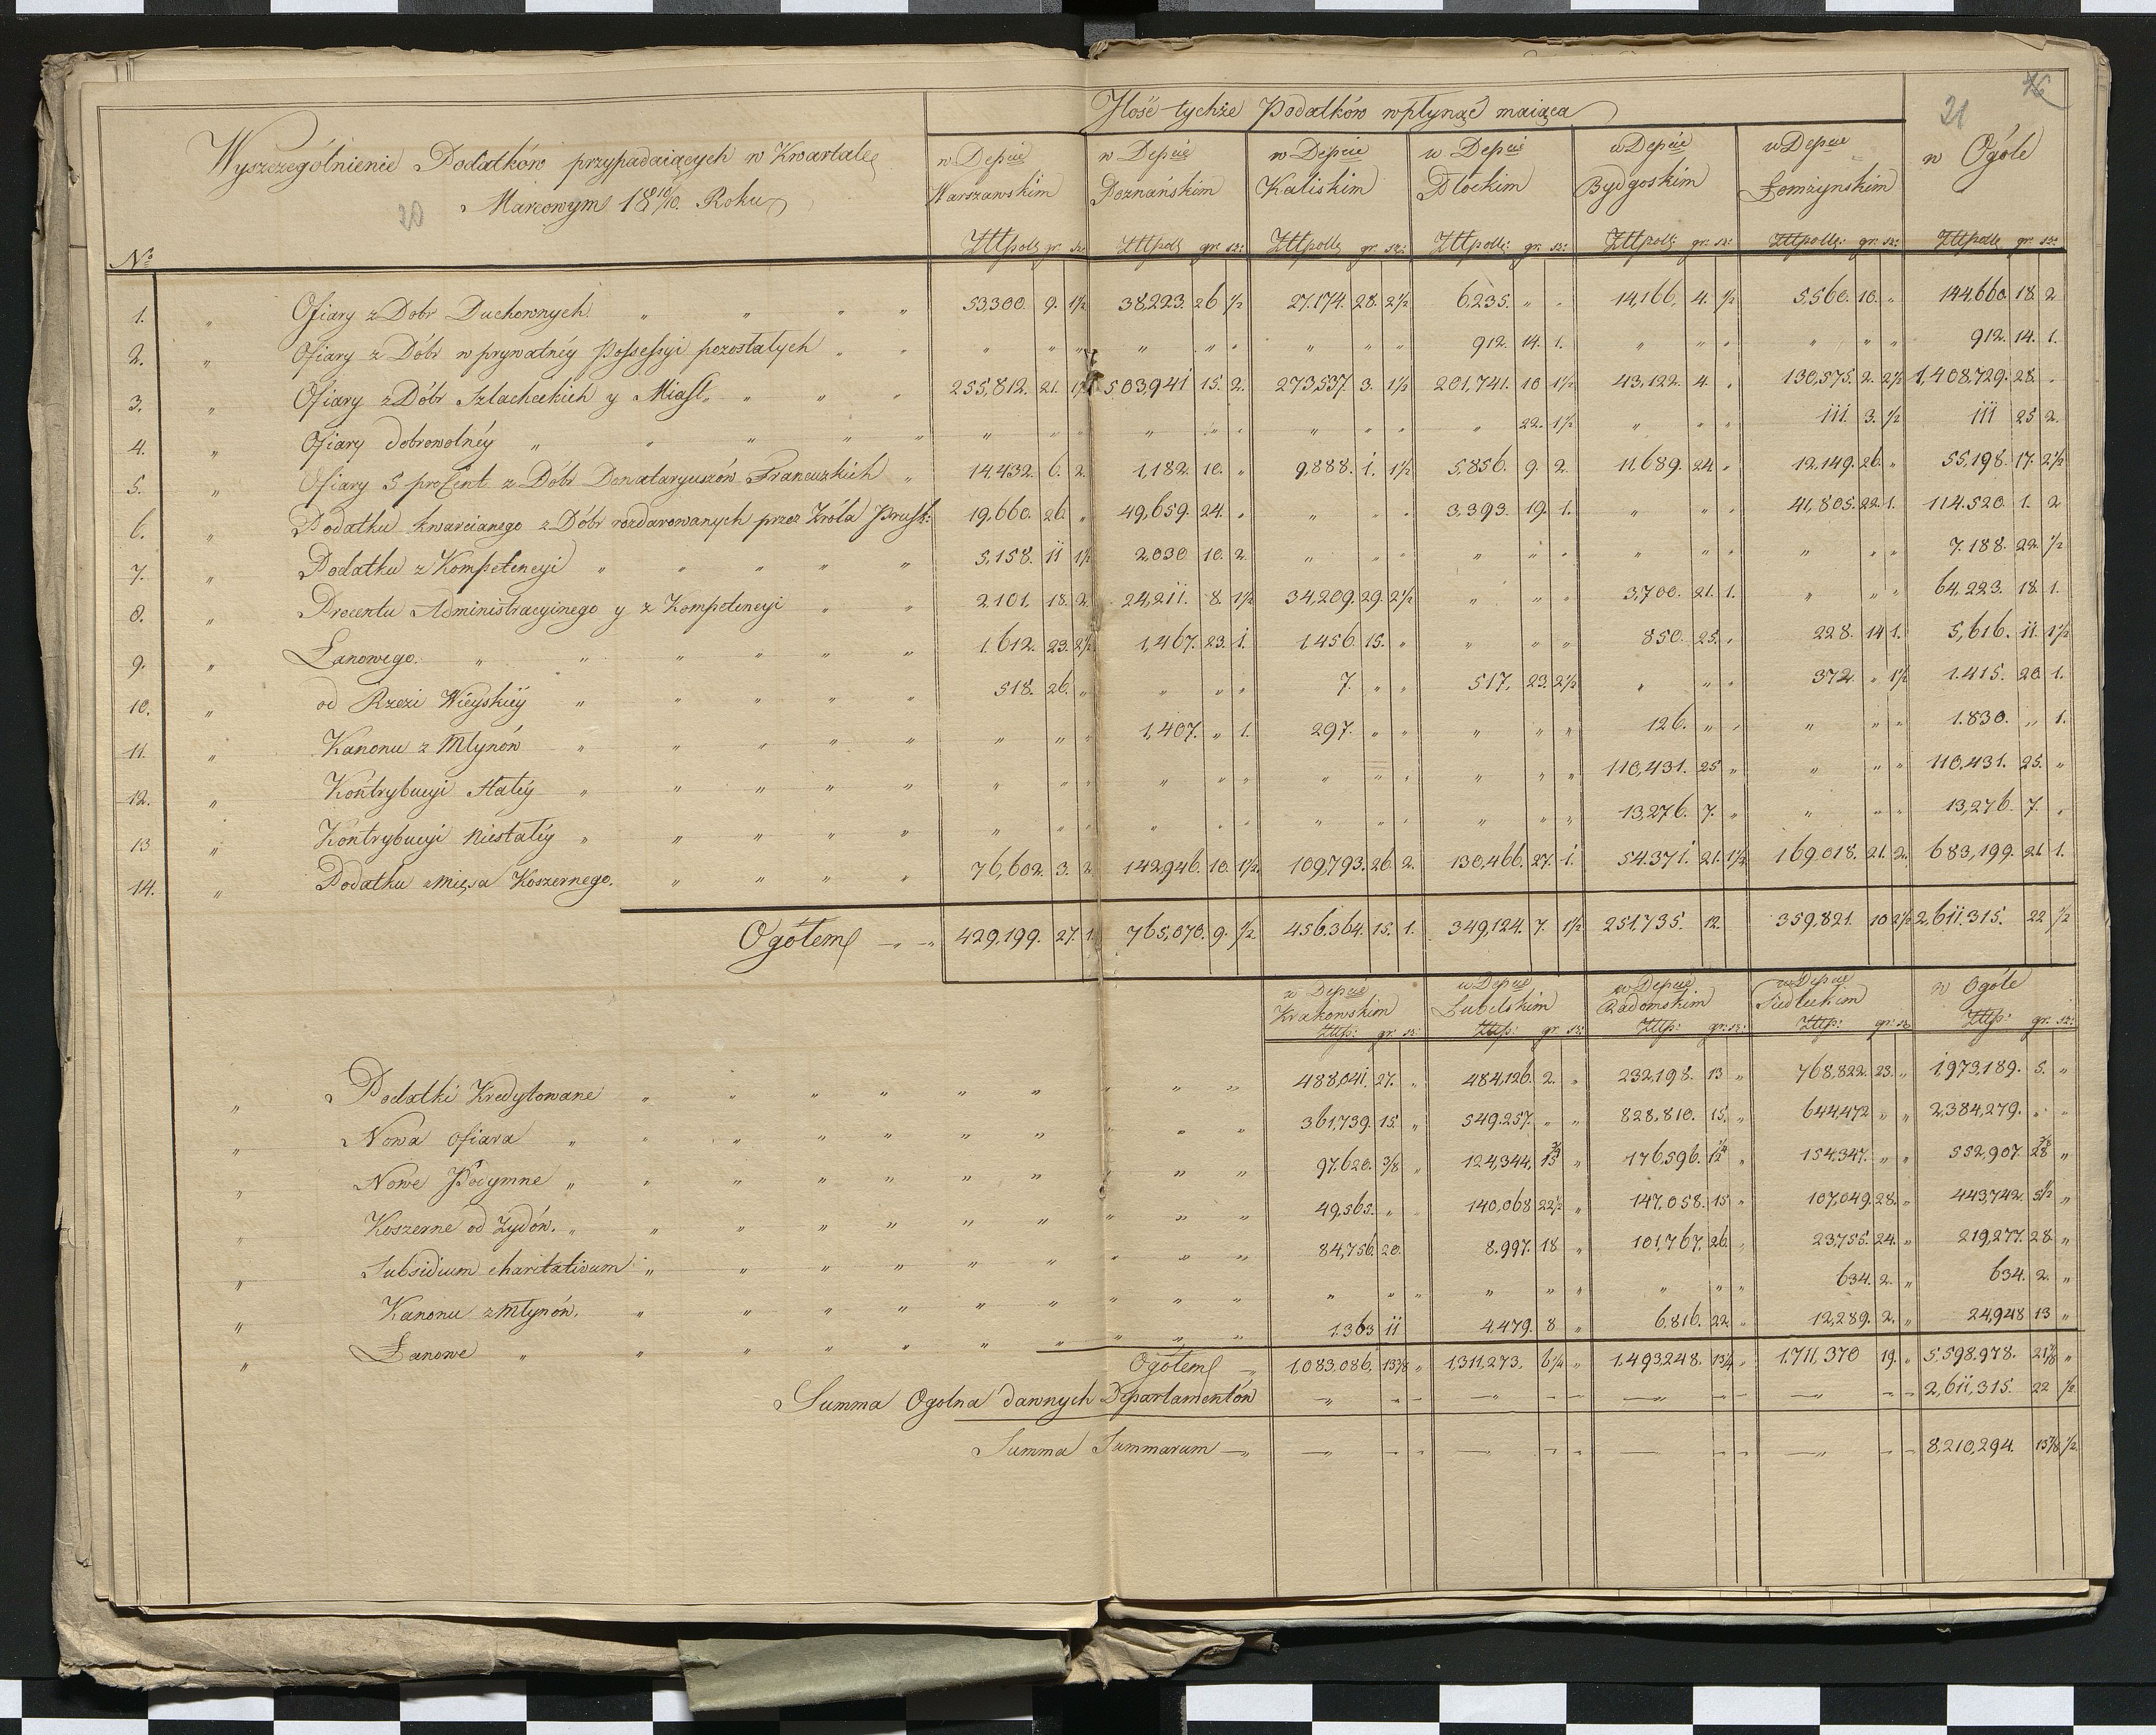 76
21
20
Ilość tychże Podatków wpłynąć maiąca
Wyszczególnienie Podatków przypadaiących w Kwartale
Marcowym 18 10/10. Roku
No
w Depcie Warszawskim
w Depcie Poznańskim
w Depcie Kaliskim
w Depcie Płockim
w Depcie Bydgoskim
w Depcie Łomżynskim
w Ogóle
Złtpolls gr. sz: Złtpolls gr. sz: Złtpolls gr. sz: Złtpolls: gr. sz: Złtpolls: gr. sz: Złtpolls: gr. sz: Złtpolls gr. sz:
1. " Ofiary z Dobr Duchownych. " " " " 53,300. 9. 1½ 38,223. 26 ½ 27.174. 28. 2½ 6.235. " " 14,166. 4. ½ 5.560. 10. " 144.660. 18. 2
2. " Ofiary z Dóbr w prywatnéy Possessyi pozostałych " " " " " " " " " " " 912. 14. 1. " " " " " " 912. 14. 1.
3. " Ofiary z Dóbr Szlacheckich y Miast. " " " 255,812. 21. 1½ 503,941 15. 2. 273,537. 3. 1½ 201,741. 10 1½ 43,122. 4. " 130,575. 2. 2½ 1,408.729. 28. "
4. " Ofiary dobrowolnéy " " " " " " " " " " " " " " " 22. 1½ " " " 111. 3. ½ 111 25 2.
5. " Ofiary 5 procent z Dóbr Donataryuszów Francuzkich " 14.432. 6. 2. 1,182. 10. " 9,888. 1. 1½ 5.856. 9. 2. 11.689. 24. " 12,149. 26. " 55,198. 17. 2½
6. " Podatku kwarcianego z Dóbr rozdarowanych przez Króla Prusk: 19,660. 26. " 49,659. 24. " " " " 3,393. 19. 1. " " " 41,805. 22. 1. 114.520. 1. 2
7. " Podatku z Kompetencyi " " " " " 5,158. 11 1½ 2,030. 10. 2. " " " " " " " " " " " " 7.188. 22. ½
8. " Procentu Administracyinego y z Kompetencyi " " 2.101. 18. 2. 24,211. 8. 1½ 34,209. 29. 2½ " " " 3,700. 21. 1. " " " 64,223. 18. 1.
9. " Łanowego. " " " " " " 1.612. 23. 2½ 1,467. 23. 1. 1.456. 15. " " " " 850. 25. " 228. 14 1. 5,616. 11. 1½
10. " od Rzezi Wieyskiéy " " " " " 518. 26. " " " " 7. " " 517. 23. 2½ " " " 372. " 1½ 1.415. 20. 1.
11. " Kanonu z Młynów " " " " " " " " 1,407. " 1. 297. " " " " " 126. " " " " " 1.830. " 1.
12. " Kontrybucyi stałéy " " " " " " " " " " " " " " " " " 110,431. 25 " " " " 110.431. 25. "
13 " Kontrybucyi niestałéy " " " " " " " " " " " " " " " " " 13,276. 7. " " " " 13,276. 7. "
14. " Podatku z Mięsa Koszernego. " " " " 76,602. 3. 2. 142946. 10. 1½. 109,793. 26. 2. 130,466. 27. 1. 54.371. 21. 1½ 169.018. 21. 2. 683,199. 21. 1.
Ogółem 429,199. 27. 1. 765,070. 9. ½. 456.364. 15. 1. 349,124. 7. 1½ 251.735. 12. 359,821. 10 2½ 2,611.315. 22 ½
w Depcie Krakowskim
w Depcie Lubelskim
w Depcie Radomskim
w Depcie Siedleckim
w Ogóle
Złtp: gr. sz: Złtp: gr. sz: Złtp: gr: sz: Złtp: gr: sz Złtp: gr. sz:
" Podatki Kredytowane " " " " " " " " " 488,041. 27. " 484,126. 2. " 232,198. 13 " 768,822. 23. " 1,973,189. 5. "
" Nowa ofiara " " " " " " " " " " 361,739. 15. " 549.257. " " 828,810. 15. " 644,472 " " 2,384,279. " "
" Nowe Podymne " " " " " " " " " " 97.620. 3/8 " 124,344. 15 " 176,596. 12 " 154,347. " " 552,907. 28 "
" Koszerne od Żydów. " " " " " " " " " " 49,565. " " 140,068 22½ " 147,058. 15 " 107,049. 28. " 443,742. 5½ "
" Subsidium charitativum " " " " " " " " " 84,756. 20. 8.997. 18 " 101,767. 26. " 23,755. 24. " 219,277. 28 "
" Kanonu z Młynów. " " " " " " " " " " " " " " " " " " 634. 2. " 634. 2. "
" Łanowe " " " " " " " " " 1.363 11 4.479. 8 " 6.816. 22 " 12,289. 2. " 24,948 13 "
Ogółem " 1,083,086. 13 3/8 " 1,311,273. 6¼ " 1.493248. 13¼ " 1.711,370 19. " 5.598.978. 21 7/8 "
Summa Ogolna dawnych Departamentów 2,611,315. 22 ½
Summa Summarum 8,210,294. 13 7/8 ½